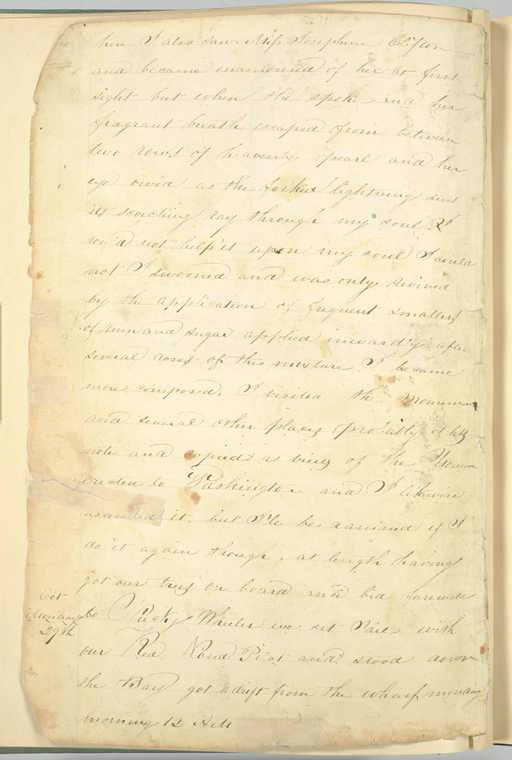 here I also saw Miss Josephine Clifton
and became enamoured of her at first
sight but when she spoke and her
fragrant breath escaped from between
two rows of heavenly pearl and her
eye vivid as the forked lightning sent
its scorching ray through my soul I
could not help it upon my soul I could
not I swooned and was only revived
by the application of frequent smallers
of rum and sugar applied inwardly after
several doses of this mixture I became
more composed. I visited the monument
and several other places probably of
note and copied a view of the
erected to Washington and I likewise
ascended it, but I'le be if I
do it again though, at length having
got our on board and bid farewell
to Wheeler we set Sail with
our Red Nosed Pilot and stood down
the Bay got adrift from the wharf monday
morning 12
Oct
Monday
29th